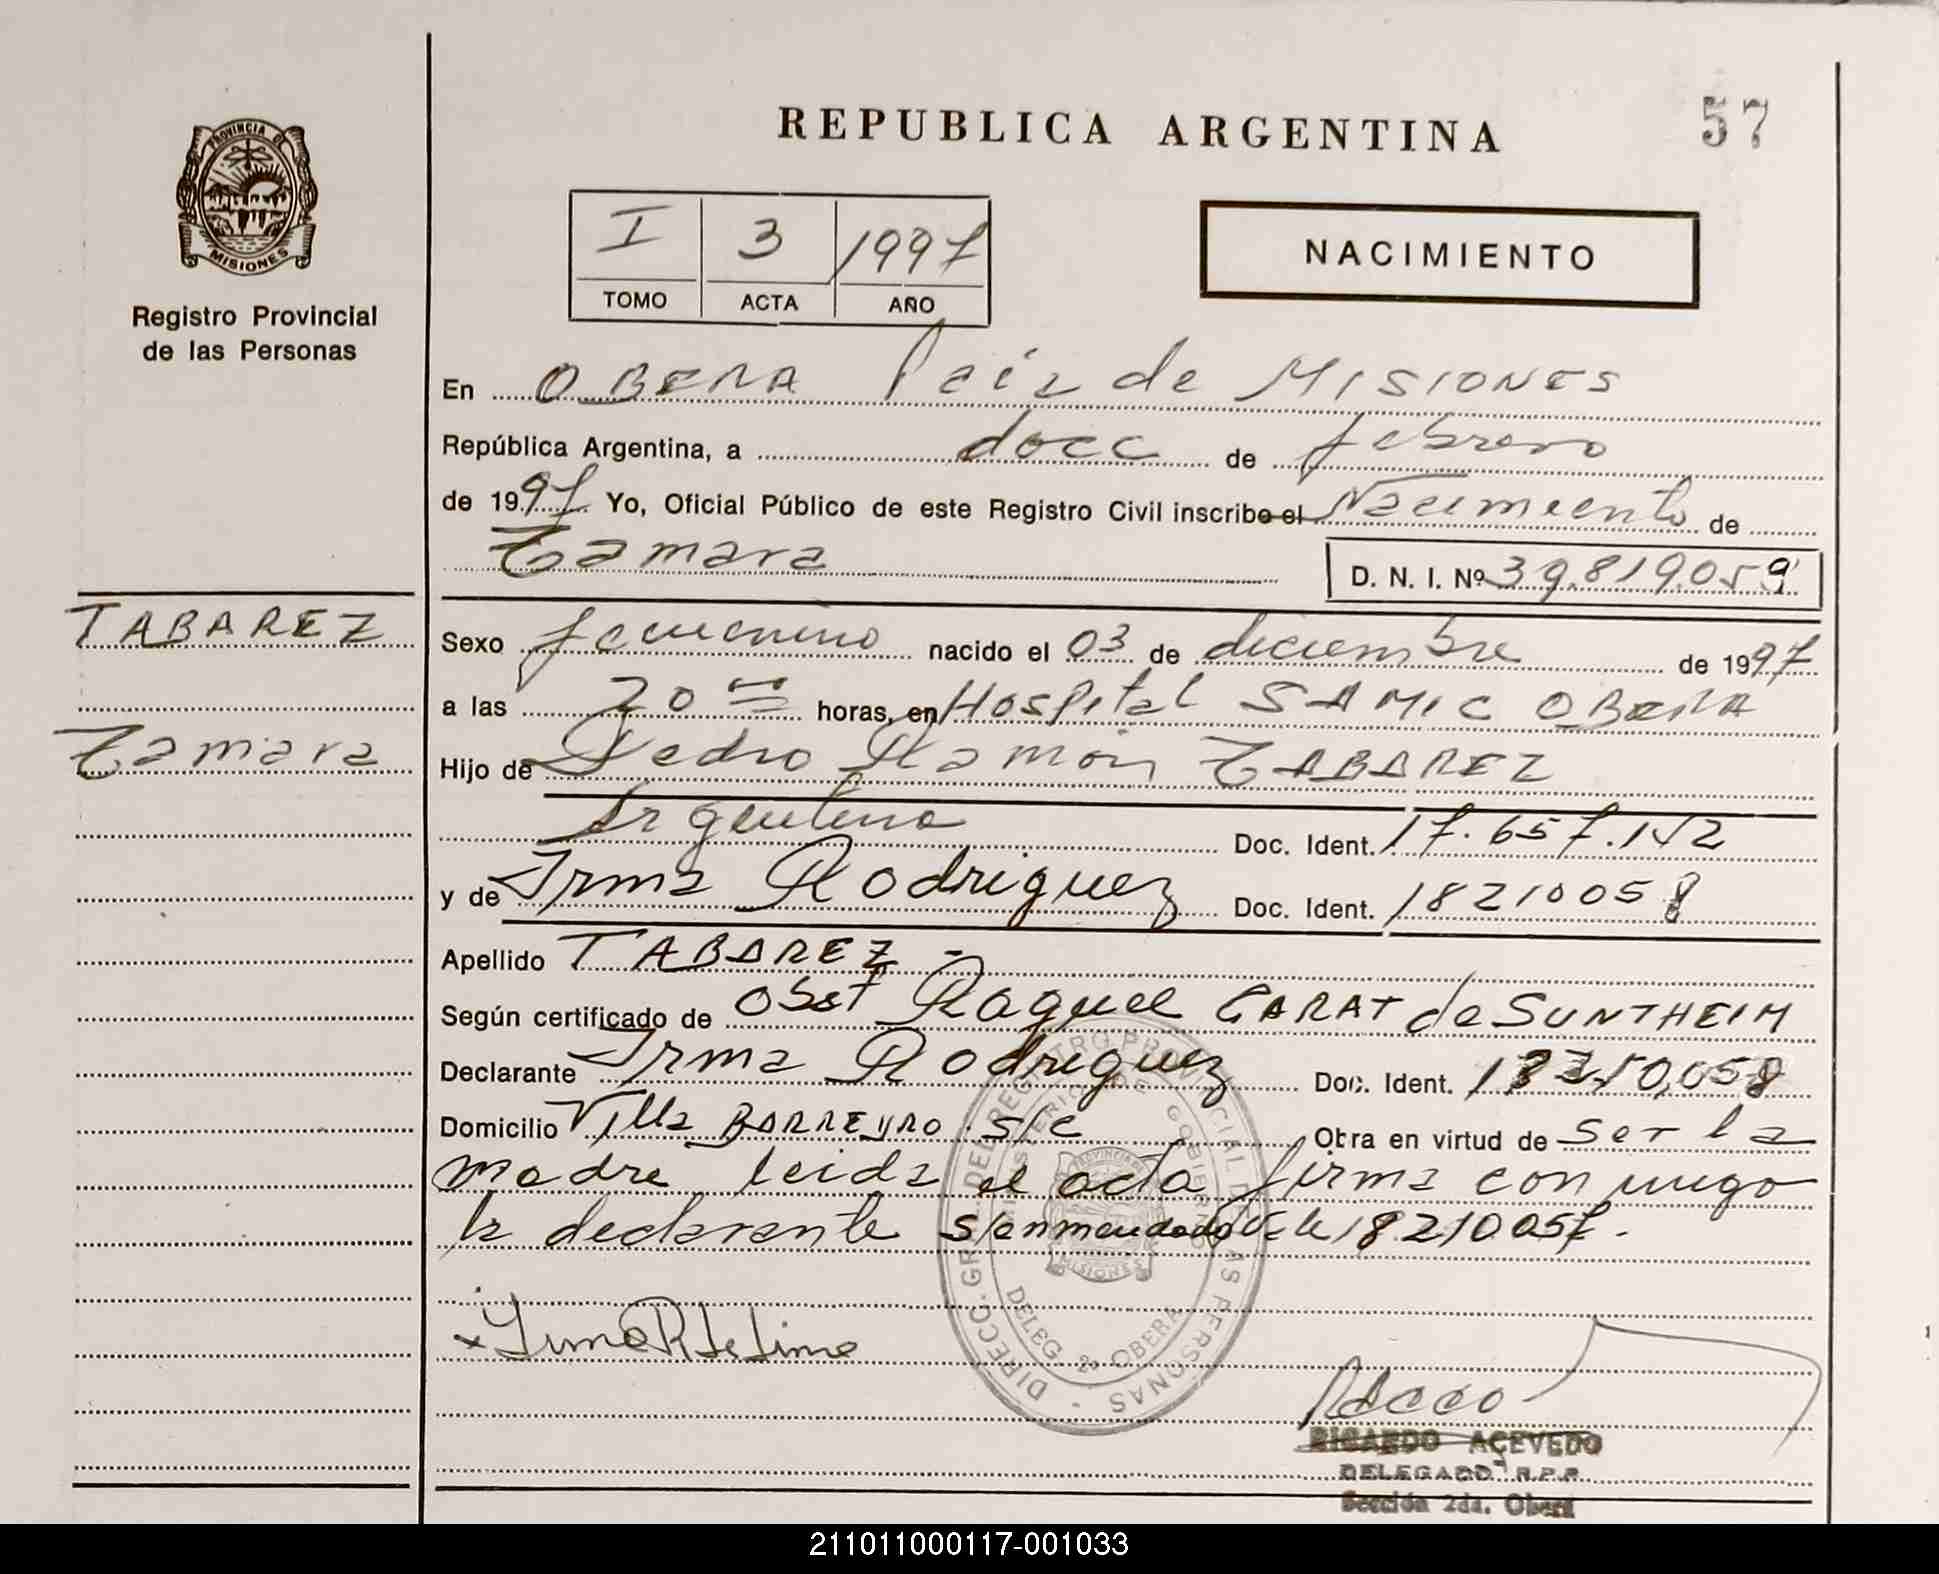 PROVINCIA DE
MISIONES
Registro Provincial
de las Personas
TABAREZ
Tamara
REPUBLICA ARGENTINA
57
I 3 1997
TOMO ACTA AÑO
NACIMIENTO
En OBERA Pcia de MISIONES
República Argentina, a doce de febrero
de 1997 Yo, Oficial Público de este Registro Civil inscribo el Nacimiento de
Tamara D. N. I. Nº 39.819.059
Sexo femenino nacido el 03 de diciembre de 1997
a las 20 horas, en Hospital SAMIC OBERA
Hijo de Pedro Ramón TABAREZ
Argentino Doc. Ident. 17.657.152
y de Irma Rodriguez Doc. Ident. 18210058
Apellido TABAREZ -
Según certificado de Obst Raquel GARAT de SUNTHEIM
Declarante Irma Rodriguez Doc. Ident.
Domicilio Villa BARREYRO s/c Obra en virtud de ser la
madre leida el acta firma conmigo
la declarante s/enmendado vale 18210058.
DIRECC. GRAL. DEL REGISTRO PROVINCIAL DE LAS PERSONAS
MINISTERIO DE GOBIERNO
PROVINCIA DE
MISIONES
DELEG. 2ª OBERA
RICARDO ACEVEDO
DELEGADO R.P.P.
Sección 2da. Oberá
211011000117-001033